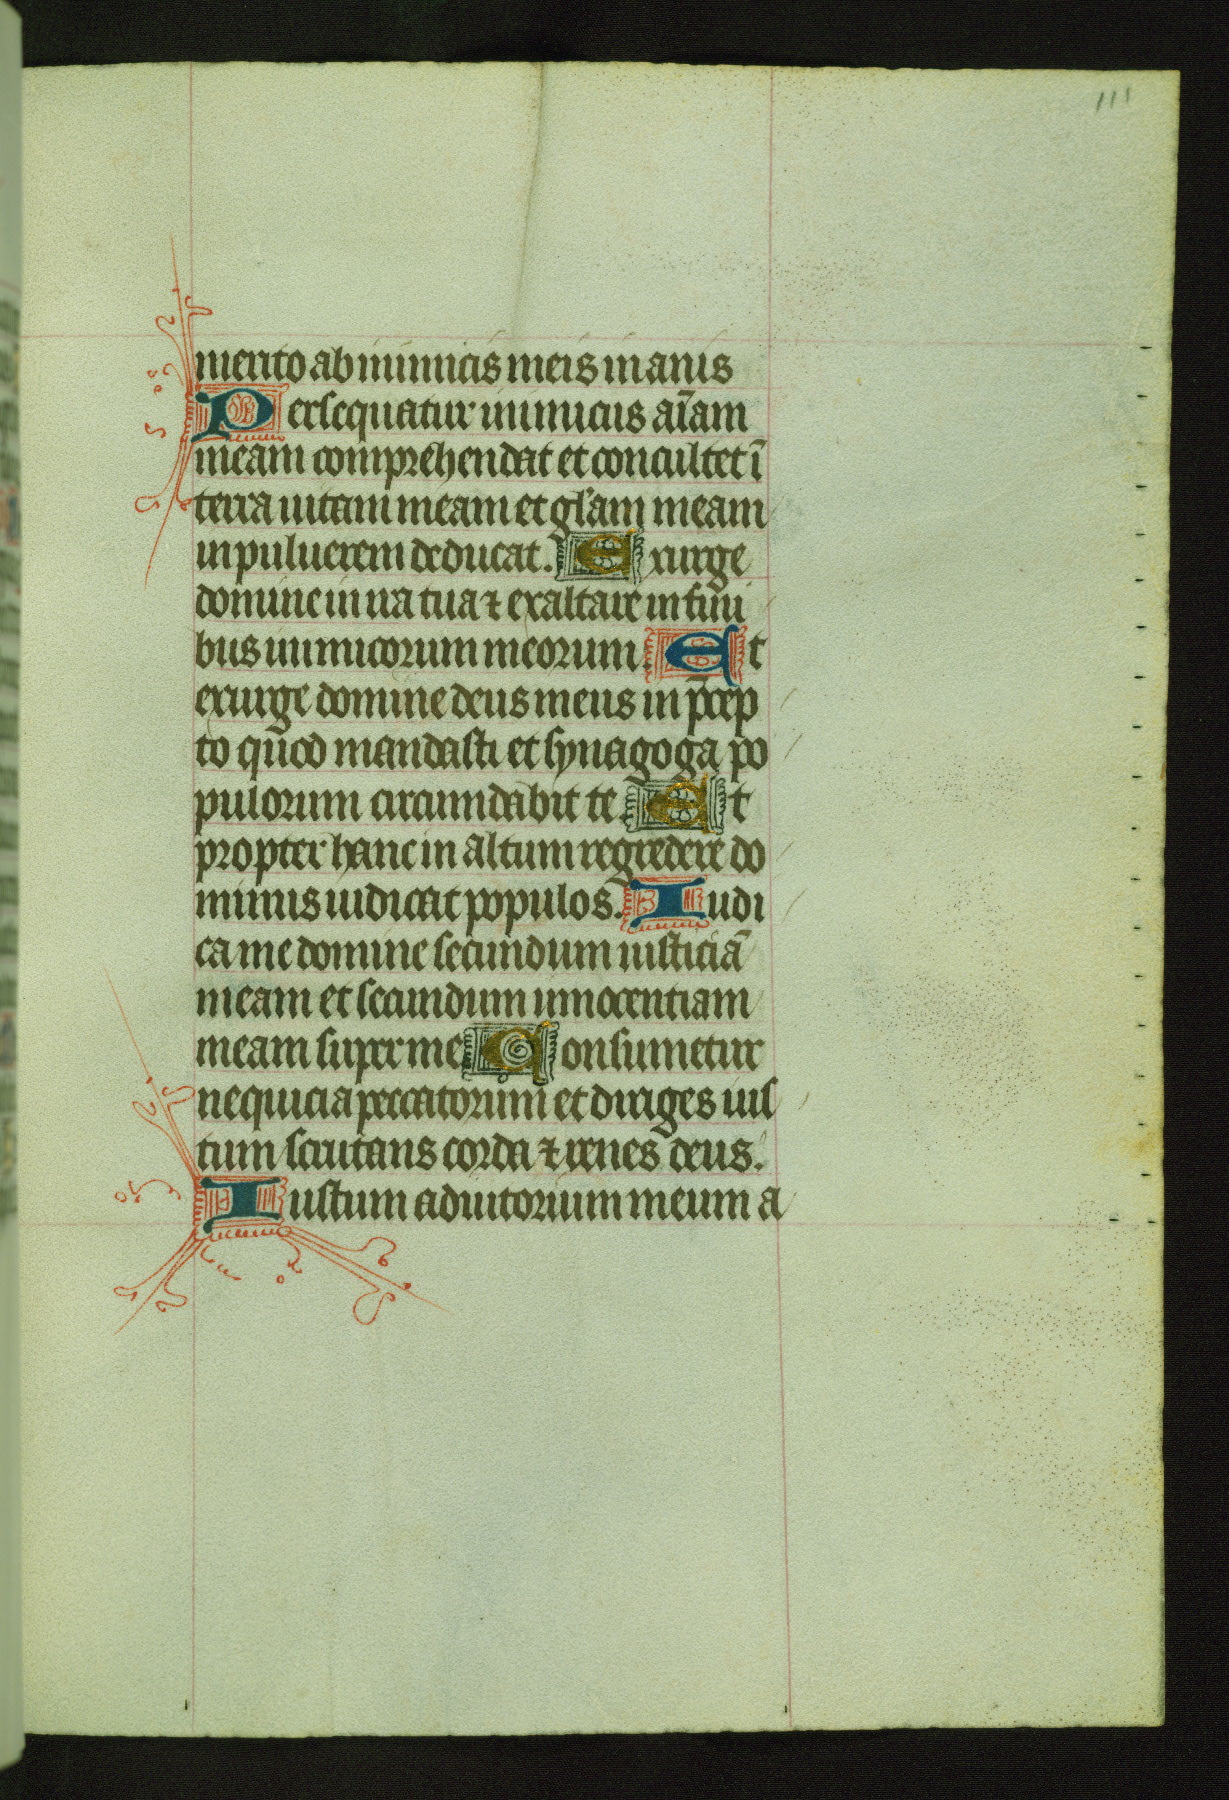 111
merito ab inimicis meis inanis
Persequatur inimicus aīam
meam comprehendat et conculcet ī
terra uitam meam et gl'am meam
in puluerem deducat. Exurge
domine in ira tua ⁊ exaltare in fini
bus inimicorum meorum. Et
exurge domine deus meus in p̄cep
to quod mandasti et synagoga po
pulorum circumdabit te. Et
propter hanc in altum regredere do
minus iudicat populos. Iudi
ca me domine secundum iusticiā
meam et secundum innocentiam
meam super me Consumetur
nequicia peccatorum et diriges ius
tum scrutans corda ⁊ renes deus.
Iustum adiutorium meum a